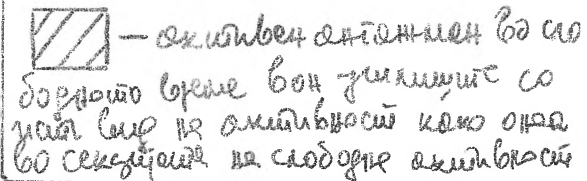 — активен ангажман во сло
бодното време вон училиште со
ист вид на активност како онаа
во секцијата на слободне активност